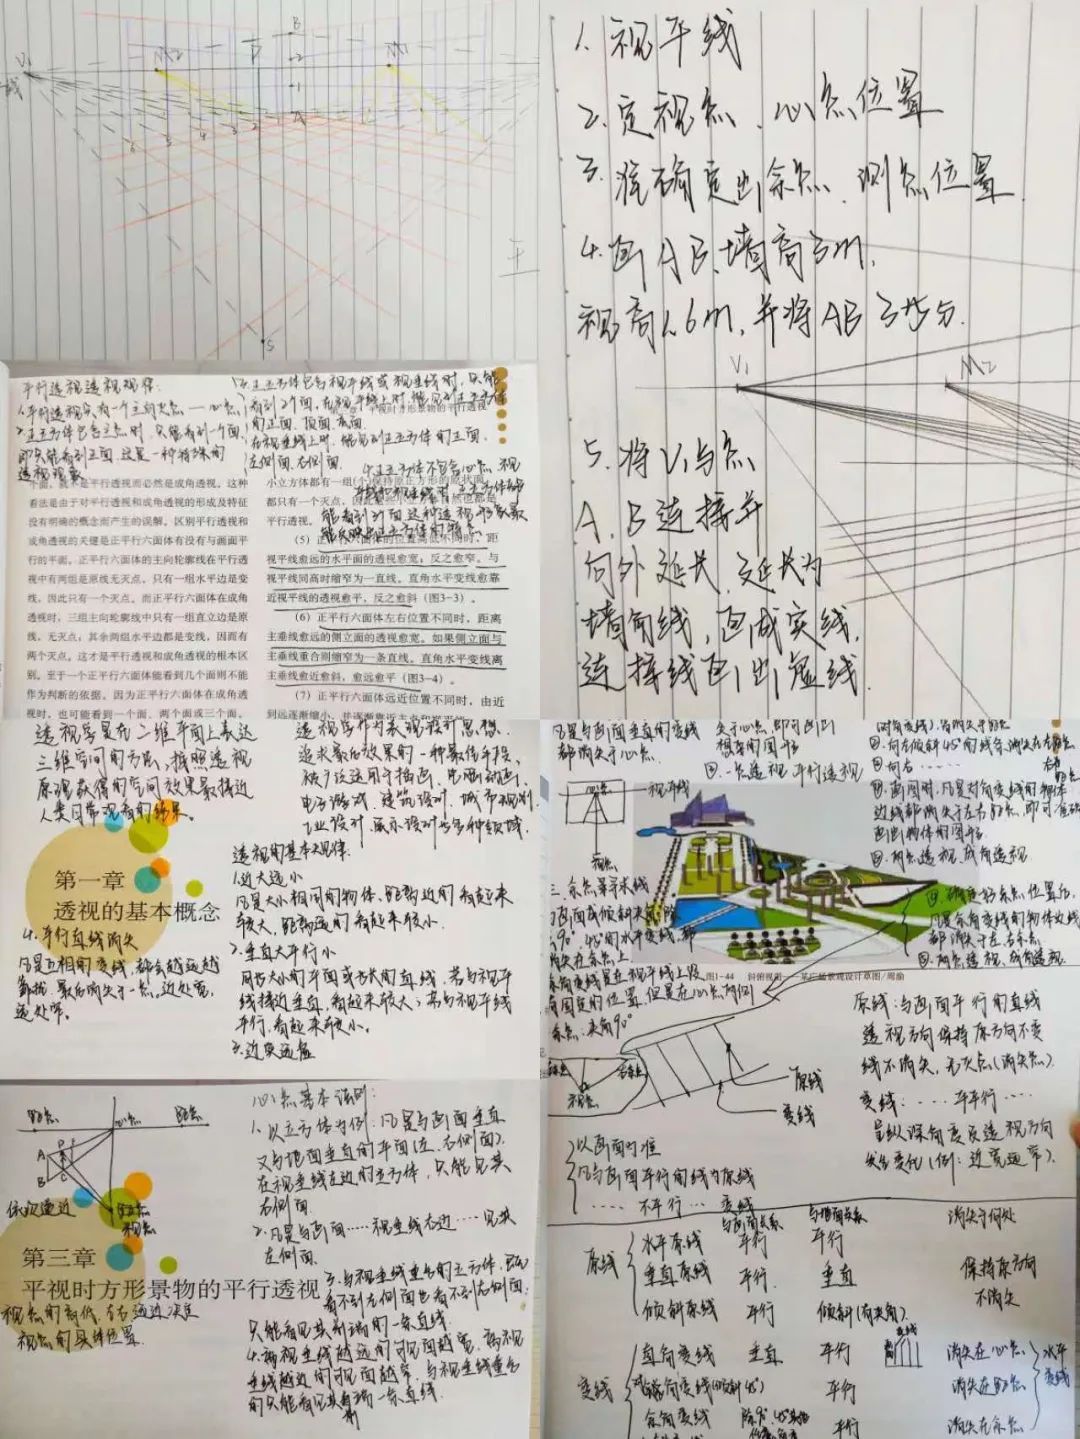 B
V1
M2
P
M1
+2
+1
A
6
5
4
3
2
S
1、视平线
2、定视点、心点位置
3、准确定出余点、测点位置
4、画AB、墙高3m,
视高1.6m,并将AB3等分.
V1
M2
5、将V1与点
A、B连接并
向外延长,延长为
墙角线,画成实线,
连接线画出虚线.
平行透视透视规律:
1.平行透视只有一个主向灭点——心点
2.正立方体包含心点时,只能看到一个面,
即只能看到正面.这是一种特殊的
透视现象
平面,就不是平行透视而必然是成角透视。这种
看法是由于对平行透视和成角透视的形成及特征
没有明确的概念而产生的误解。区别平行透视和
成角透视的关键是正平行六面体有没有与画面平
行的平面。正平行六面体的主向轮廓线在平行透
视中有两组是原线无灭点,只有一组水平边是变
线,因此只有一个灭点。而正平行六面体在成角
透视时,三组主向轮廓线中只有一组直立边是原
线,无灭点;其余两组水平边都是变线,因而有
两个灭点。这才是平行透视和成角透视的根本区
别。至于一个正平行六面体能看到几个面则不能
作为判断的依据。因为正平行六面体在成角透
视时,也可能看到一个面、两个面或三个面。
3.正立方体包含视平线或视垂线时,只能
看到2个面,在视平线上时,能见到正立方体
的正面、顶面、底面.
在视垂线上时,能见到正立方体的正面、
左侧面、右侧面.
4.正立方体不包含心点、视
平线和视垂线时,正立方体能
能看到3个面这种透视形象最
小立方体都有一组(个)保持原正方形的原状面,
都只有一个灭点,
平行透视。
(5)正平行六面体的位置高低不同时,距
视平线愈远的水平面的透视愈宽,反之愈窄。与
视平线同高时缩窄为一直线。直角水平变线愈靠
近视平线的透视愈平,反之愈斜(图3-3)。
(6)正平行六面体左右位置不同时,距离
主垂线愈远的侧立面的透视愈宽。如果侧立面与
主垂线重合则缩窄为一条直线。直角水平变线离
主垂线愈近愈斜,愈远愈平(图3-4)。
(7)正平行六面体远近位置不同时,由近
到远逐渐缩小,并逐渐靠近主点和视平线
透视学是在二维平面上表达
三维空间的方法,按照透视
原理获得的空间效果最接近
人类日常观看的结果。
透视学作为表现设计思想、
追求最后效果的一种最佳手段,
被广泛运用于插画、电脑动画、
电子游戏、建筑设计、城市规划、
工业设计、展示设计等多种领域.
第一章
透视的基本概念
透视的基本规律
1.近大远小
凡是大小相同的物体、距离近的看起来
较大,距离远的看起来较小。
2.垂直大平行小
同长大小的平面或等长的直线,若与视平
线接近垂直,看起来较大;若与视平线
平行,看起来较小。
3.近实远虚
4.平行直线消失
凡是互相的变线,都会越远越
靠拢,最后消失于一点。近处宽,
远处窄。
凡是与画面垂直的变线
都消失于心点.
关于心点,即可画出
想要的图形
④.一点透视 平行透视
②.向左倾斜45°的线条,消失在左距点
③.向右……
④.画图时,凡是对角变线的物体
边线都消失于左右距点,即可准确
画出物体的图形.
⑤.两点透视、成角透视
心点
视平线
视点
三、余点寻求线
消失在余点上
余角变线是在视平线上没
有固定的位置,但是在心点两侧
余点:夹角90°
图1-44 斜俯视图——某广场景观设计草图/周瑜
④.确定好余点位置后,
凡是余角变线的物体边线
都消失于左右余点
⑤.两点透视、成角透视
原线:与画面平行的直线
透视方向保持原方向不变
线不消失,无灭点(消失点).
变线:……不平行……
呈纵深角度及透视方向
发生变化(例:近宽远窄).
视点
原线
变线
以画面为准
凡与画面平行的线为原线
……不平行…变线
与画面关系
与地面关系
消失于何处
原线
水平原线 平行 平行
垂直原线 平行 垂直
倾斜原线 平行 倾斜(有夹角)
保持原方向
不消失
变线
直角变线 垂直 平行 消失在心点
对角变线(倾斜45°) 平行 消失在距点
余角变线 除90°、45°其他 平行 消失在余点
水平
变线
距点
心点
距点
A
B
C
视点
依次递近
第三章
平视时方形景物的平行透视
视点的高低、左右远近决定
视点的具体位置.
心点基本法则:
1.以立方体为例,凡是与画面垂直
又与地面垂直的平面(左、右侧面),
在视垂线左边的立方体,只能见其
右侧面.
2.凡是与画面……视垂线右边……见其
左侧面.
3.与视垂线重合的立方体,既
看不到左侧面也看不到右侧面,
只能看见其前端的一条直线.
4.离视垂线越远的可见面越宽,离视
垂线越近的可见面越窄,与视垂线重合
的只能看见其前端一条直线.